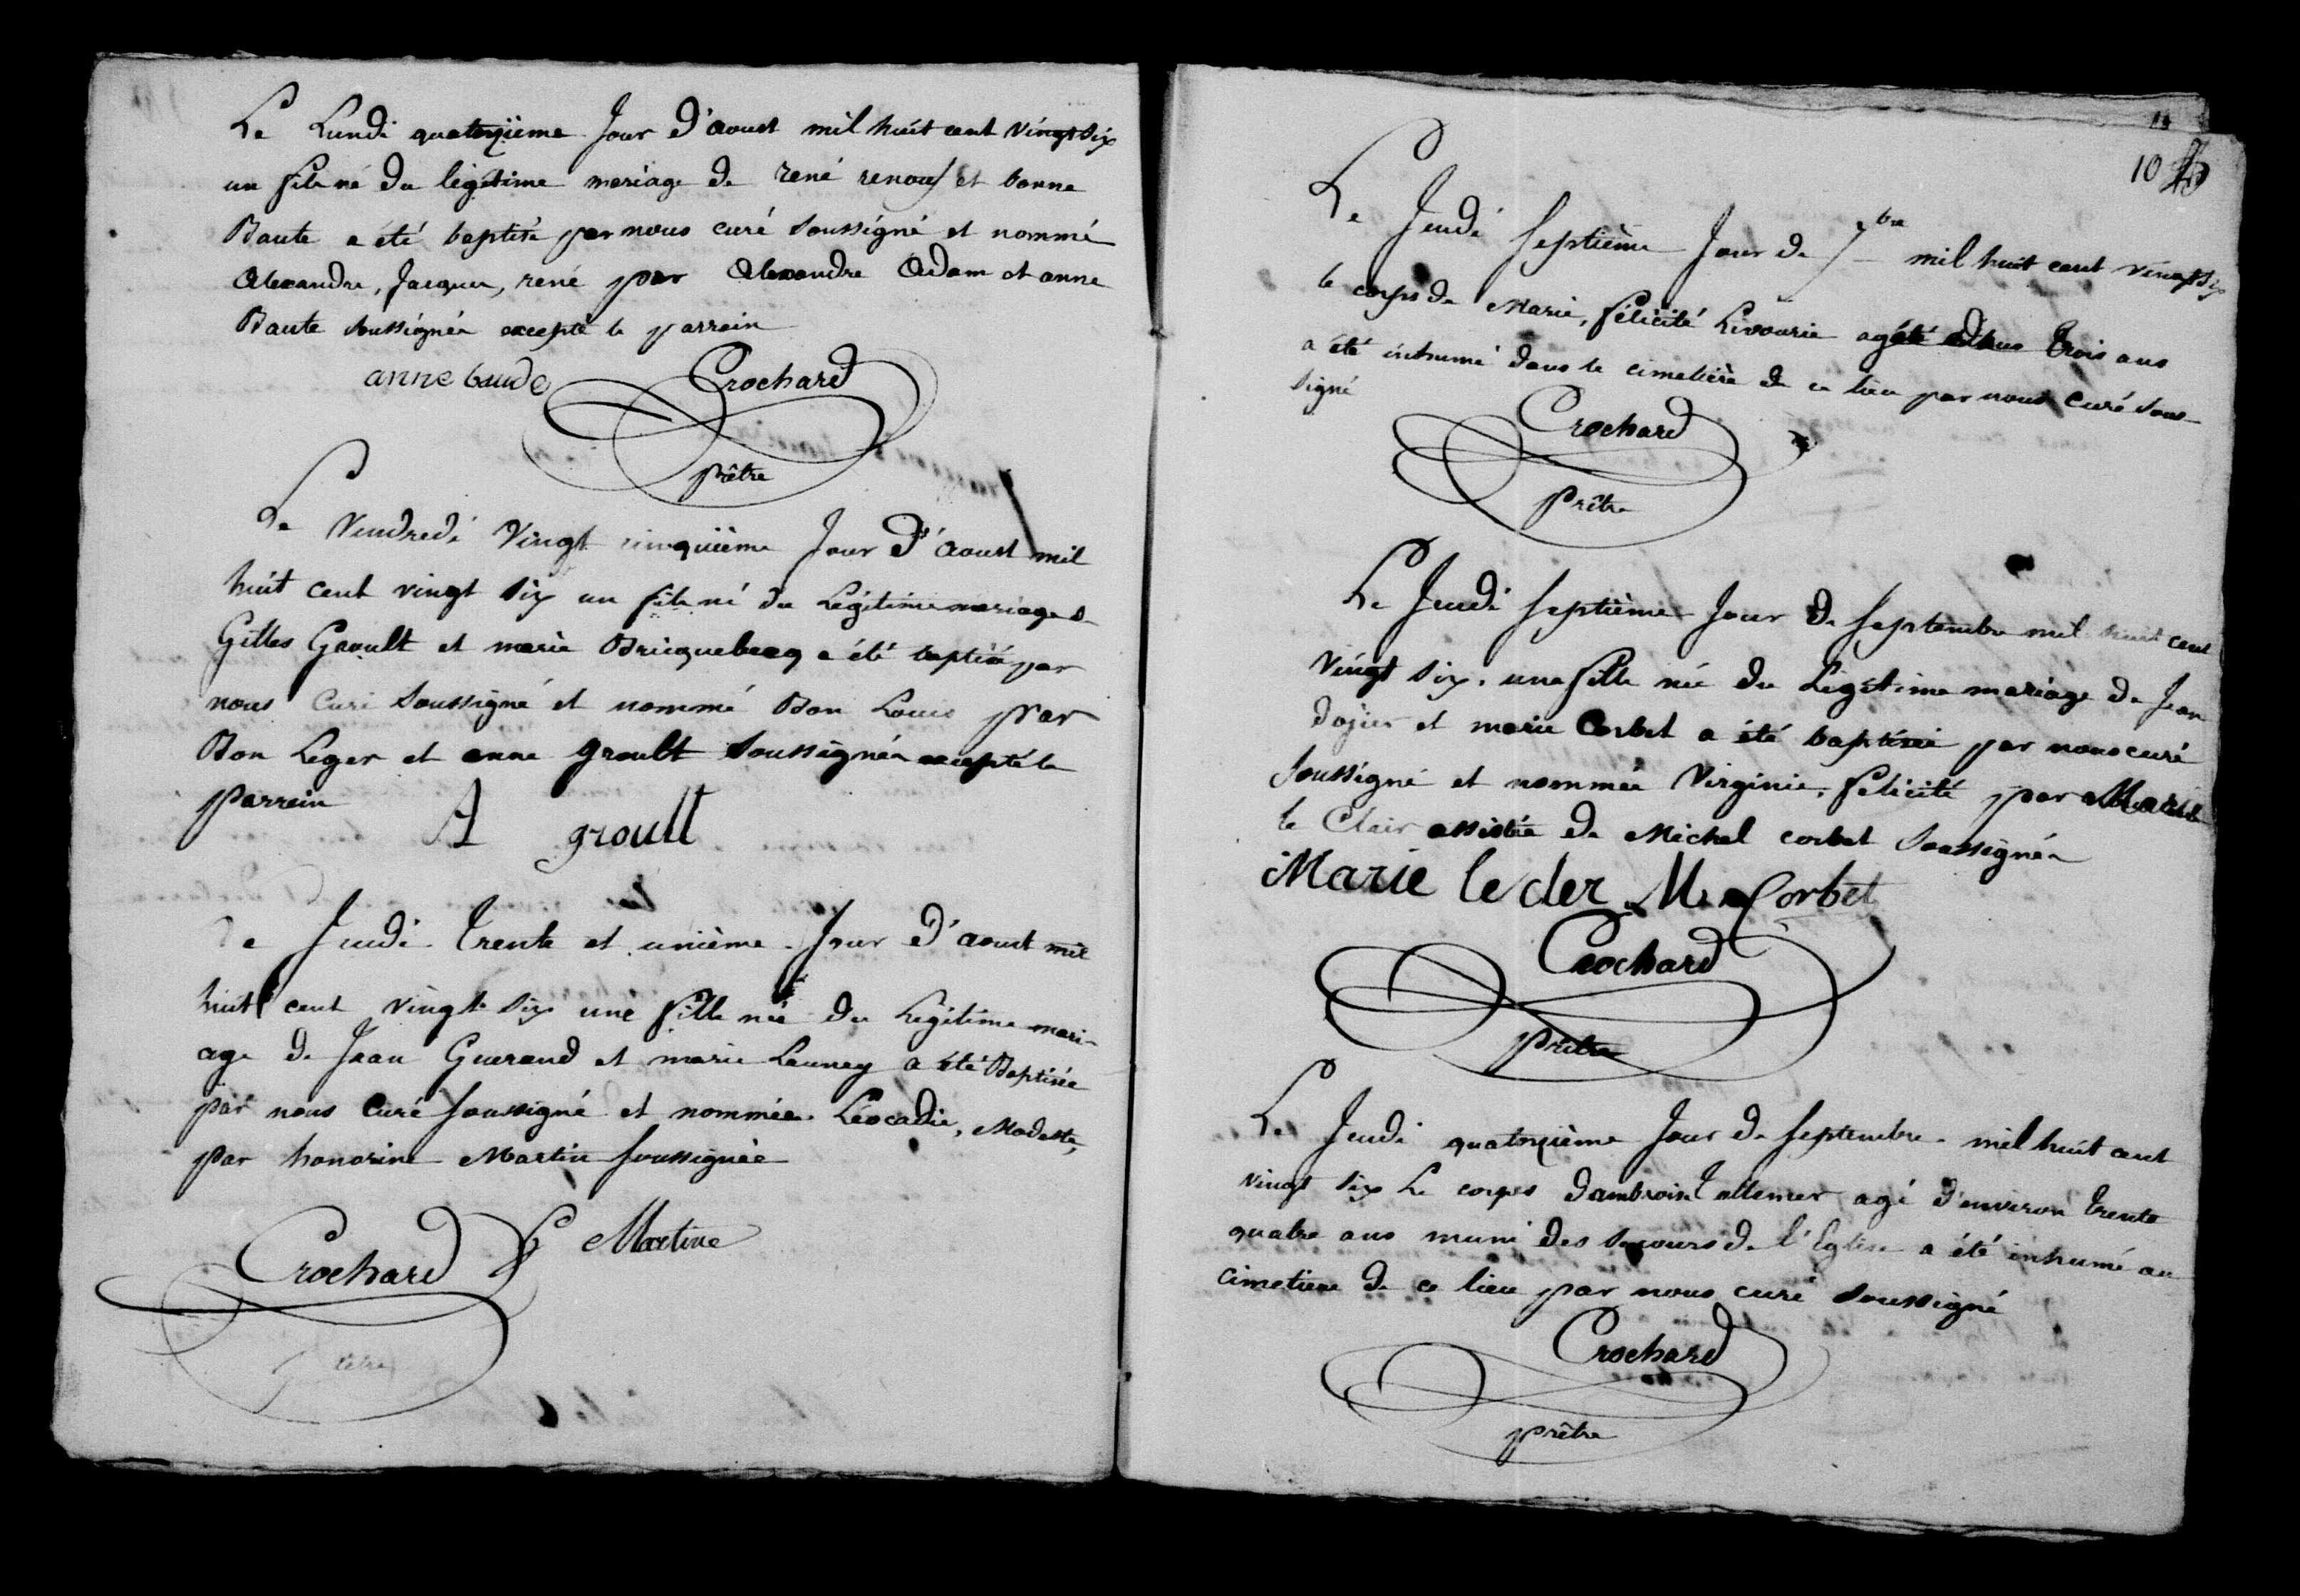 Le Lundi quatorzième Jour d'aoust mil huit cent vingt six
un fils né du légitime mariage de rené renouf et bonne
Baute a été baptisé par nous curé soussigné et nommé
Alexandre, Jacques, rené par Alexandre Adam et anne
Baute soussignée excepté le parrain
anne baude Crochard
prêtre
Le Vendredi Vingt cinquième Jour d'aoust mil
huit cent vingt six un fils né du Légitime mariage d
Gilles Groult et marie Bricquebecq a été baptisé par
nous Curé soussigné et nommé Bon Louis par
Bon Leger et anne groult soussignée excepté le
parrain
A groult
Le Jeudi Trente et unième Jour d'aoust mil
huit cent vingt six une fille née du Légitime mari-
age de Jean Guerand et marie Launey a été Baptisée
par nous Curé soussigné et nommée Léocadie, Modeste,
par honorine Martin soussignée
Crochard h Martine
prêtre
10
Le Jeudi septième Jour de 7bre mil huit cent vingt six
le corps de Marie, félicité Livourie trois ans
a été inhumé dans le cimetière de ce lieu par nous Curé sous-
signé
Crochard
prêtre
Le Jeudi septième Jour de septembre mil huit cent
vingt six, une fille née du Légitime mariage de Jean
dojier et marie Corbet a été baptisée par nous curé
soussigné et nommée Virginie, félicité par Marie
le Clair assistée de Michel corbet soussignés
Marie le cler M Corbet
Crochard
prêtre
Le Jeudi quatorzième Jour de septembre mil huit cent
vingt six Le corps d'ambroise agé d'environ trente
quatre ans muni des secours de l'Eglise a été inhumé au
cimetiere de ce lieu par nous curé soussigné
Crochard
prêtre